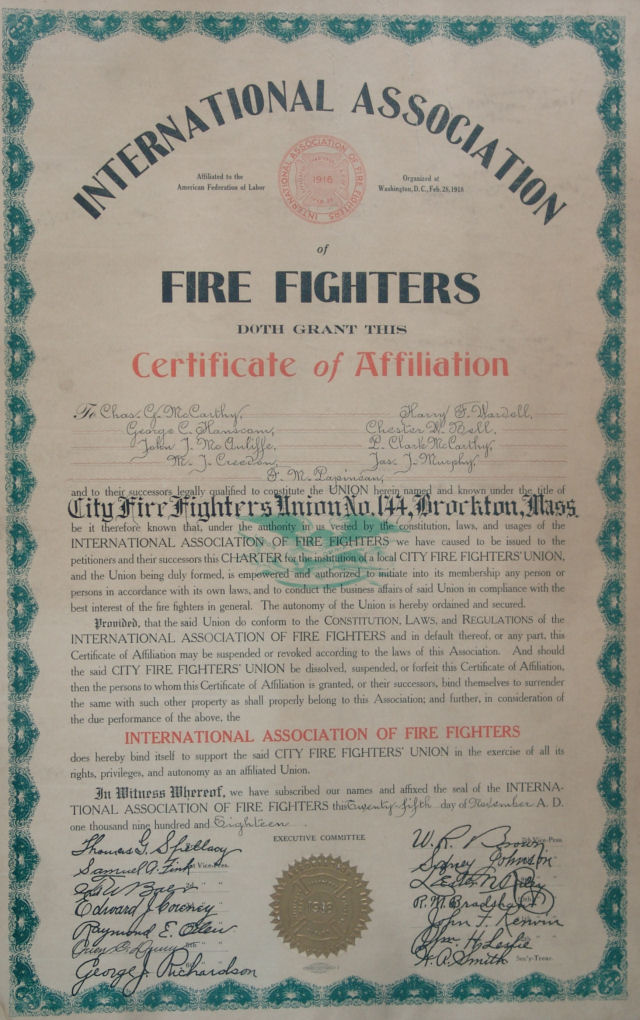 INTERNATIONAL ASSOCIATION
Affiliated to the
American Federation of Labor
INTERNATIONAL ASSOCIATION OF FIRE FIGHTERS
1918
Organized at
Washington, D.C., Feb. 28, 1918
of
FIRE FIGHTERS
DOTH GRANT THIS
Certificate of Affiliation
To Chas. G. McCarthy, Harry F. Wardell,
George C. Hanscom, Chester W. Bell,
John J. McAuliffe, P. Clark McCarthy,
M. J. Creedon, Jas. J. Murphy,
F. M. Papineau,
and to their successors legally qualified to constitute the UNION herein named and known under the title of
City Fire Fighters Union No. 144, Brockton, Mass.
be it therefore known that, under the authority in us vested by the constitution, laws, and usages of the
INTERNATIONAL ASSOCIATION OF FIRE FIGHTERS we have caused to be issued to the
petitioners and their successors this CHARTER for the institution of a local CITY FIRE FIGHTERS' UNION,
and the Union being duly formed, is empowered and authorized to initiate into its membership any person or
persons in accordance with its own laws, and to conduct the business affairs of said Union in compliance with the
best interest of the fire fighters in general. The autonomy of the Union is hereby ordained and secured.
Provided, that the said Union do conform to the CONSTITUTION, LAWS, and REGULATIONS of the
INTERNATIONAL ASSOCIATION OF FIRE FIGHTERS and in default thereof, or any part, this
Certificate of Affiliation may be suspended or revoked according to the laws of this Association. And should
the said CITY FIRE FIGHTERS' UNION be dissolved, suspended, or forfeit this Certificate of Affiliation,
then the persons to whom this Certificate of Affiliation is granted, or their successors, bind themselves to surrender
the same with such other property as shall properly belong to this Association; and further, in consideration of
the due performance of the above, the
INTERNATIONAL ASSOCIATION OF FIRE FIGHTERS
does hereby bind itself to support the said CITY FIRE FIGHTERS' UNION in the exercise of all its
rights, privileges, and autonomy as an affiliated Union.
In Witness Whereof, we have subscribed our names and affixed the seal of the INTERNA-
TIONAL ASSOCIATION OF FIRE FIGHTERS this Twenty-fifth day of November A. D.
one thousand nine hundred and Eighteen
EXECUTIVE COMMITTEE
Thomas G. Spellacy
Samuel A. Fink Vice-Pres.
Edward J. Cowney
Raymond E. Oden
George J. Richardson
W. R. Brown Vice-Pres.
Sidney Johnson
P. M. Bradshaw
John F. Kerwin
Jas. H. Leslie
W. A. Smith Sec'y-Treas.